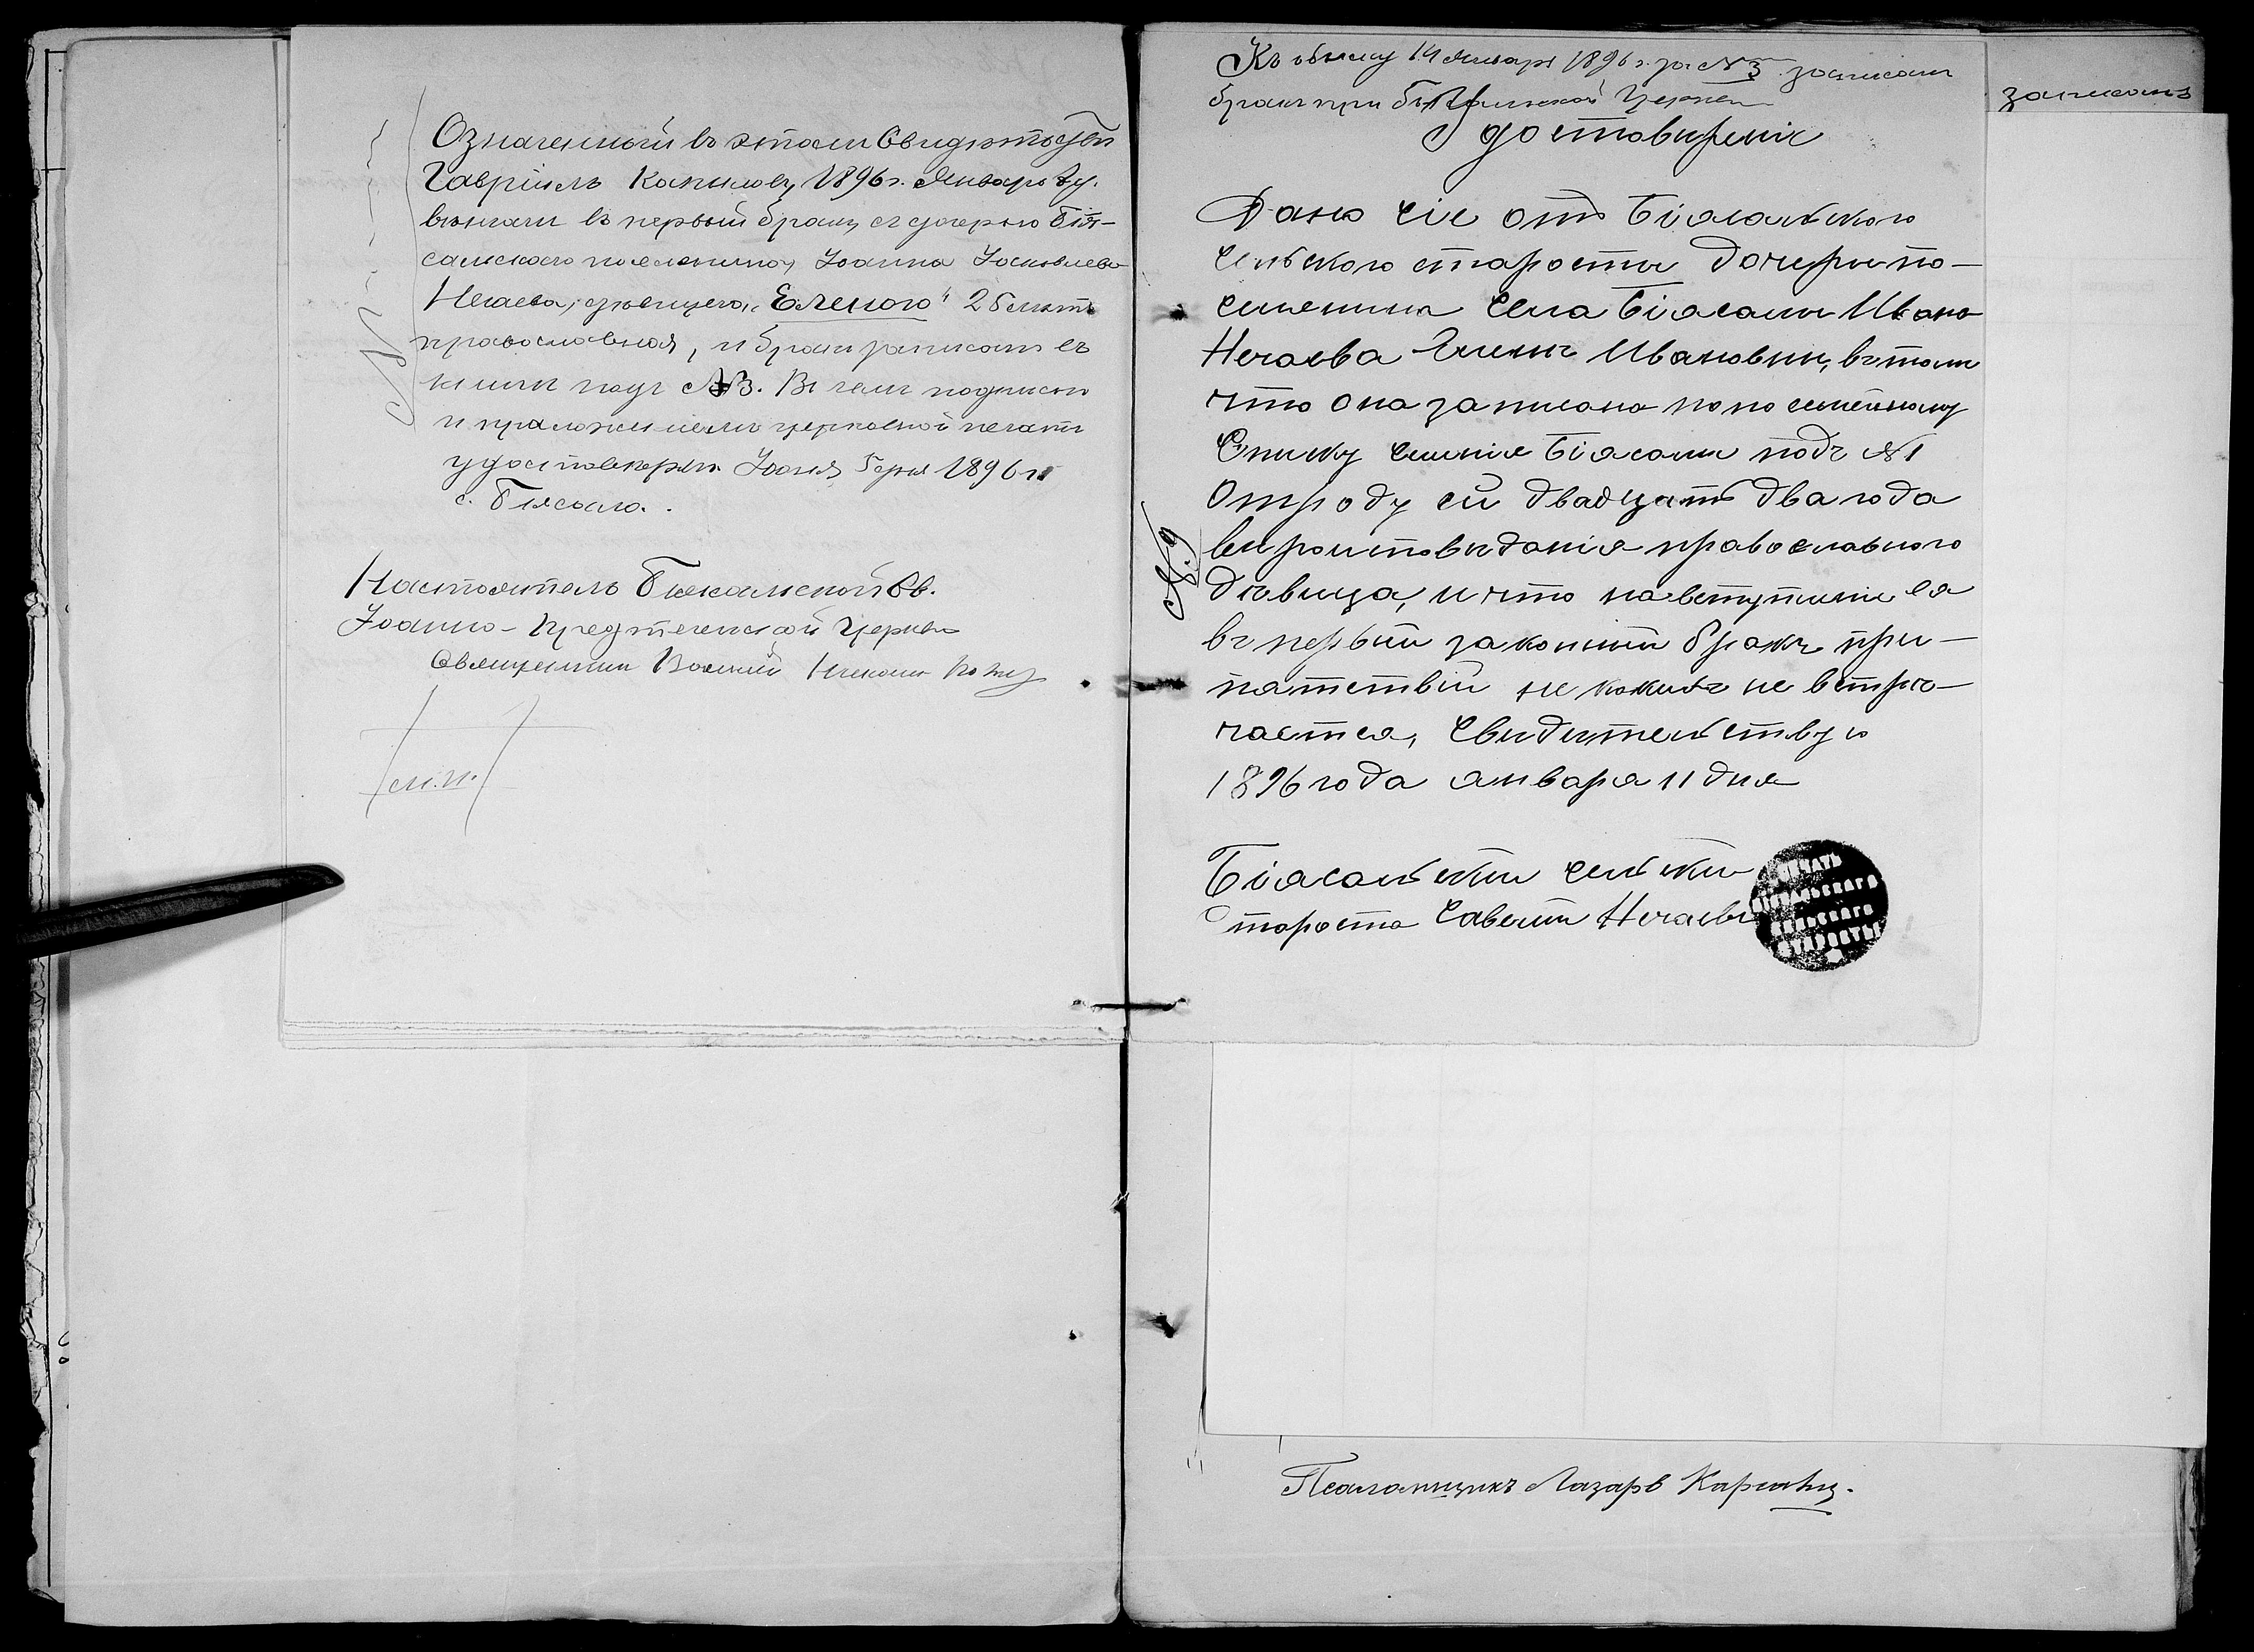 Означенный въ этомъ Свидѣтельствѣ
Гавріилъ 1896 г. Января
вѣнчанъ въ первый бракъ съ дочерью Бія-
сальскаго поселянина Іоанна Іаковлева
Нечаева, дѣвицею, „Еленою“ лѣтъ
православная, и бракъ записанъ въ
книги подъ №3. Въ чемъ подписью
и приложеніемъ церковной печати
удостовѣряю. 1896 г.
с. Біясала.
Настоятель Біясальской Св.
Іоанно-Предтеченской Церкви
Священникъ
м.п.
Къ обыску 14 Января 1896 г. за №3 записанъ
бракъ при Біясальской Церкви
Удостовиреніе
Дано сіе отъ Біясальского
сельского старосты дочери по-
селенина села Біясалы Ивана
Нечаева Елены Ивановны, въ томъ
что она записана по посемейному
Списку селенія Біясалы подъ №1
Отроду ей двадцать два года
вероисповиданія православного
дѣвица, и что на вступленіе ея
въ первый законный бракъ при-
пятствій не какихъ не встрѣ-
чается, Свидительствую
1896 года января 11 дня
№ 9
Біясальский сельский
Староста Савелий Нечаевъ
ПЕЧАТЬ
БІЯСАЛЬСКАГО
СЕЛЬСКАГО
СТАРОСТЫ
записанъ
Псаломщикъ Лазарь